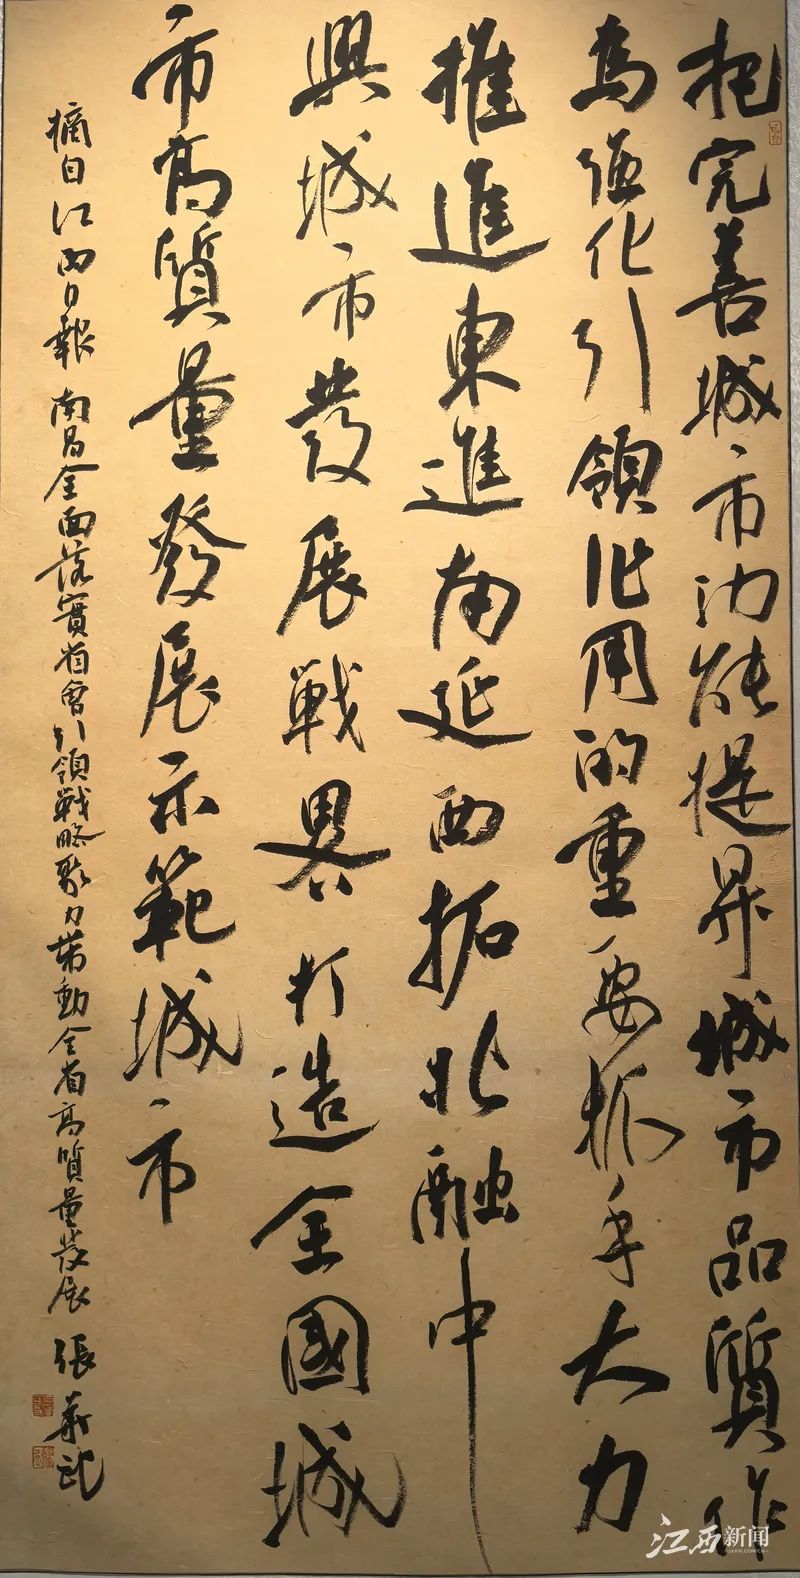 把完善城市功能提昇城市品質作
為強化引領作用的重要抓手大力
推進東進南延西拓北融中
興城市發展戰畧打造全國城
市高質量發展示範城市
摘自江西日報 南昌全面落實省會引領戰略聚力帶動全省高質量發展 張 記
江西新闻